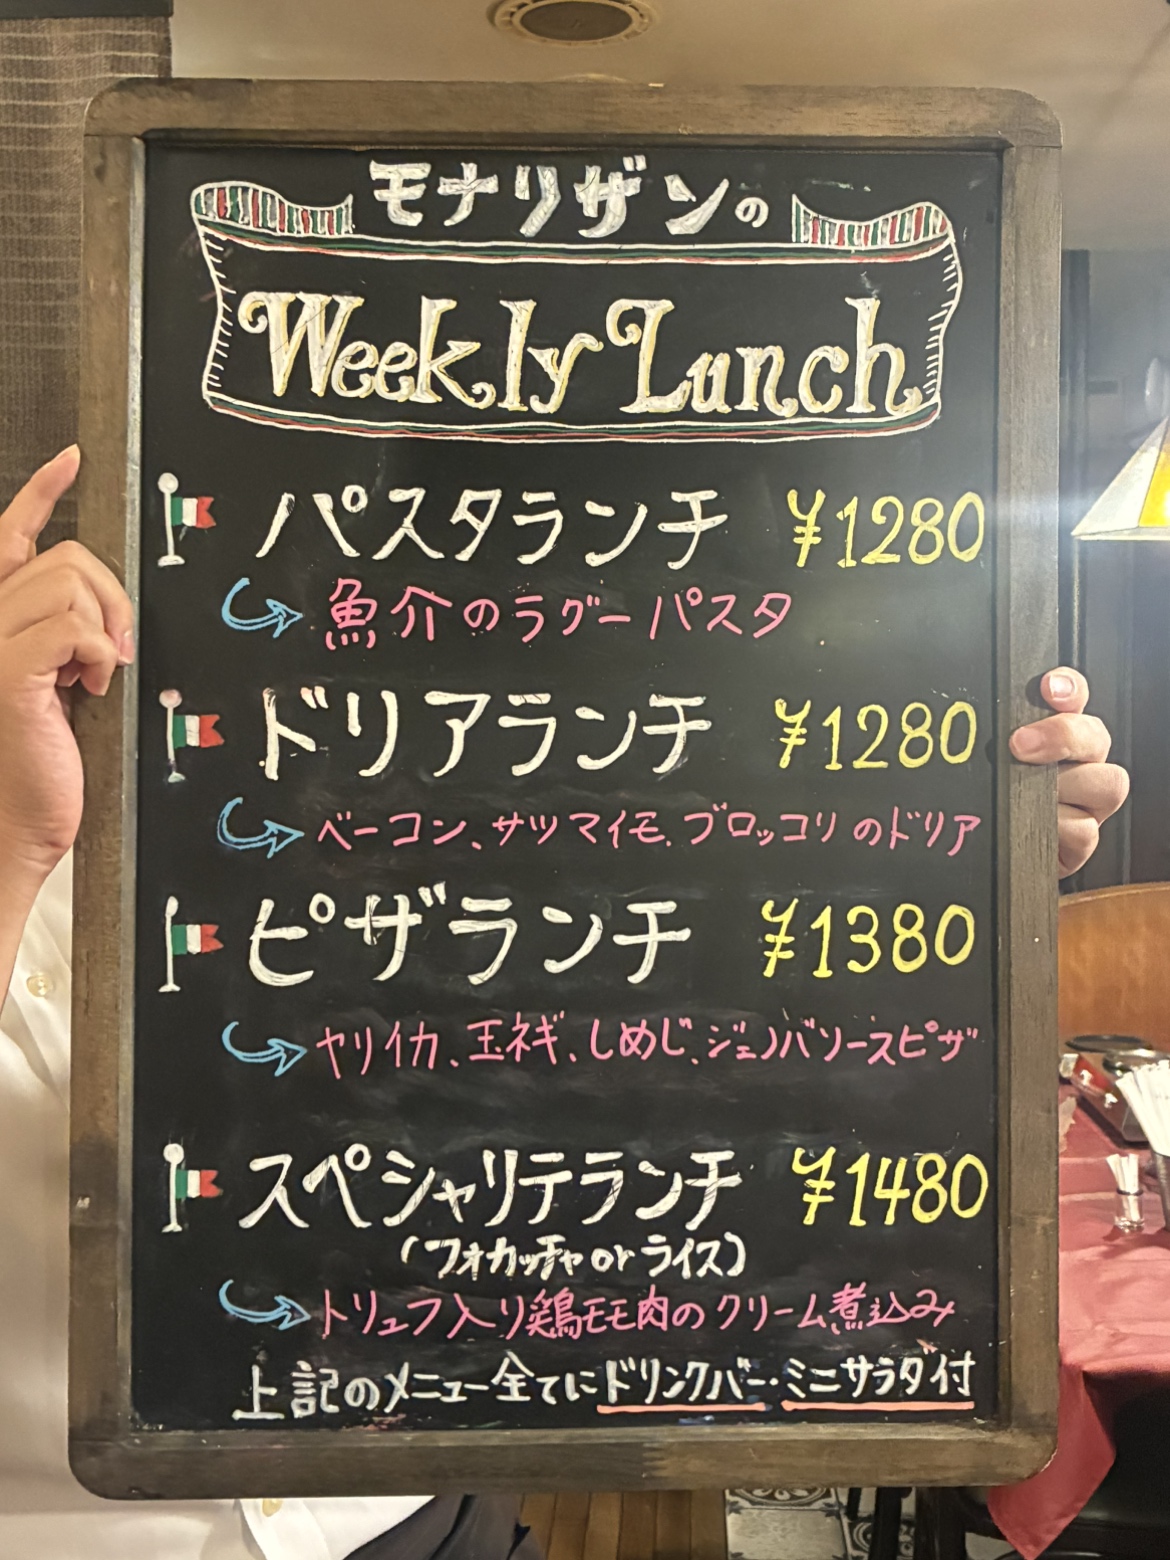 モナリザンの
Weekly Lunch
パスタランチ ¥1280
魚介のラグーパスタ
ドリアランチ ¥1280
ベーコン、サツマイモ、ブロッコリのドリア
ピザランチ ¥1380
ヤリイカ、玉ネギ、しめじ、ジェノバソースピザ
スペシャリテランチ ¥1480
(フォカッチャorライス)
トリュフ入り鶏モモ肉のクリーム煮込み
上記のメニュー全てにドリンクバー・ミニサラダ付